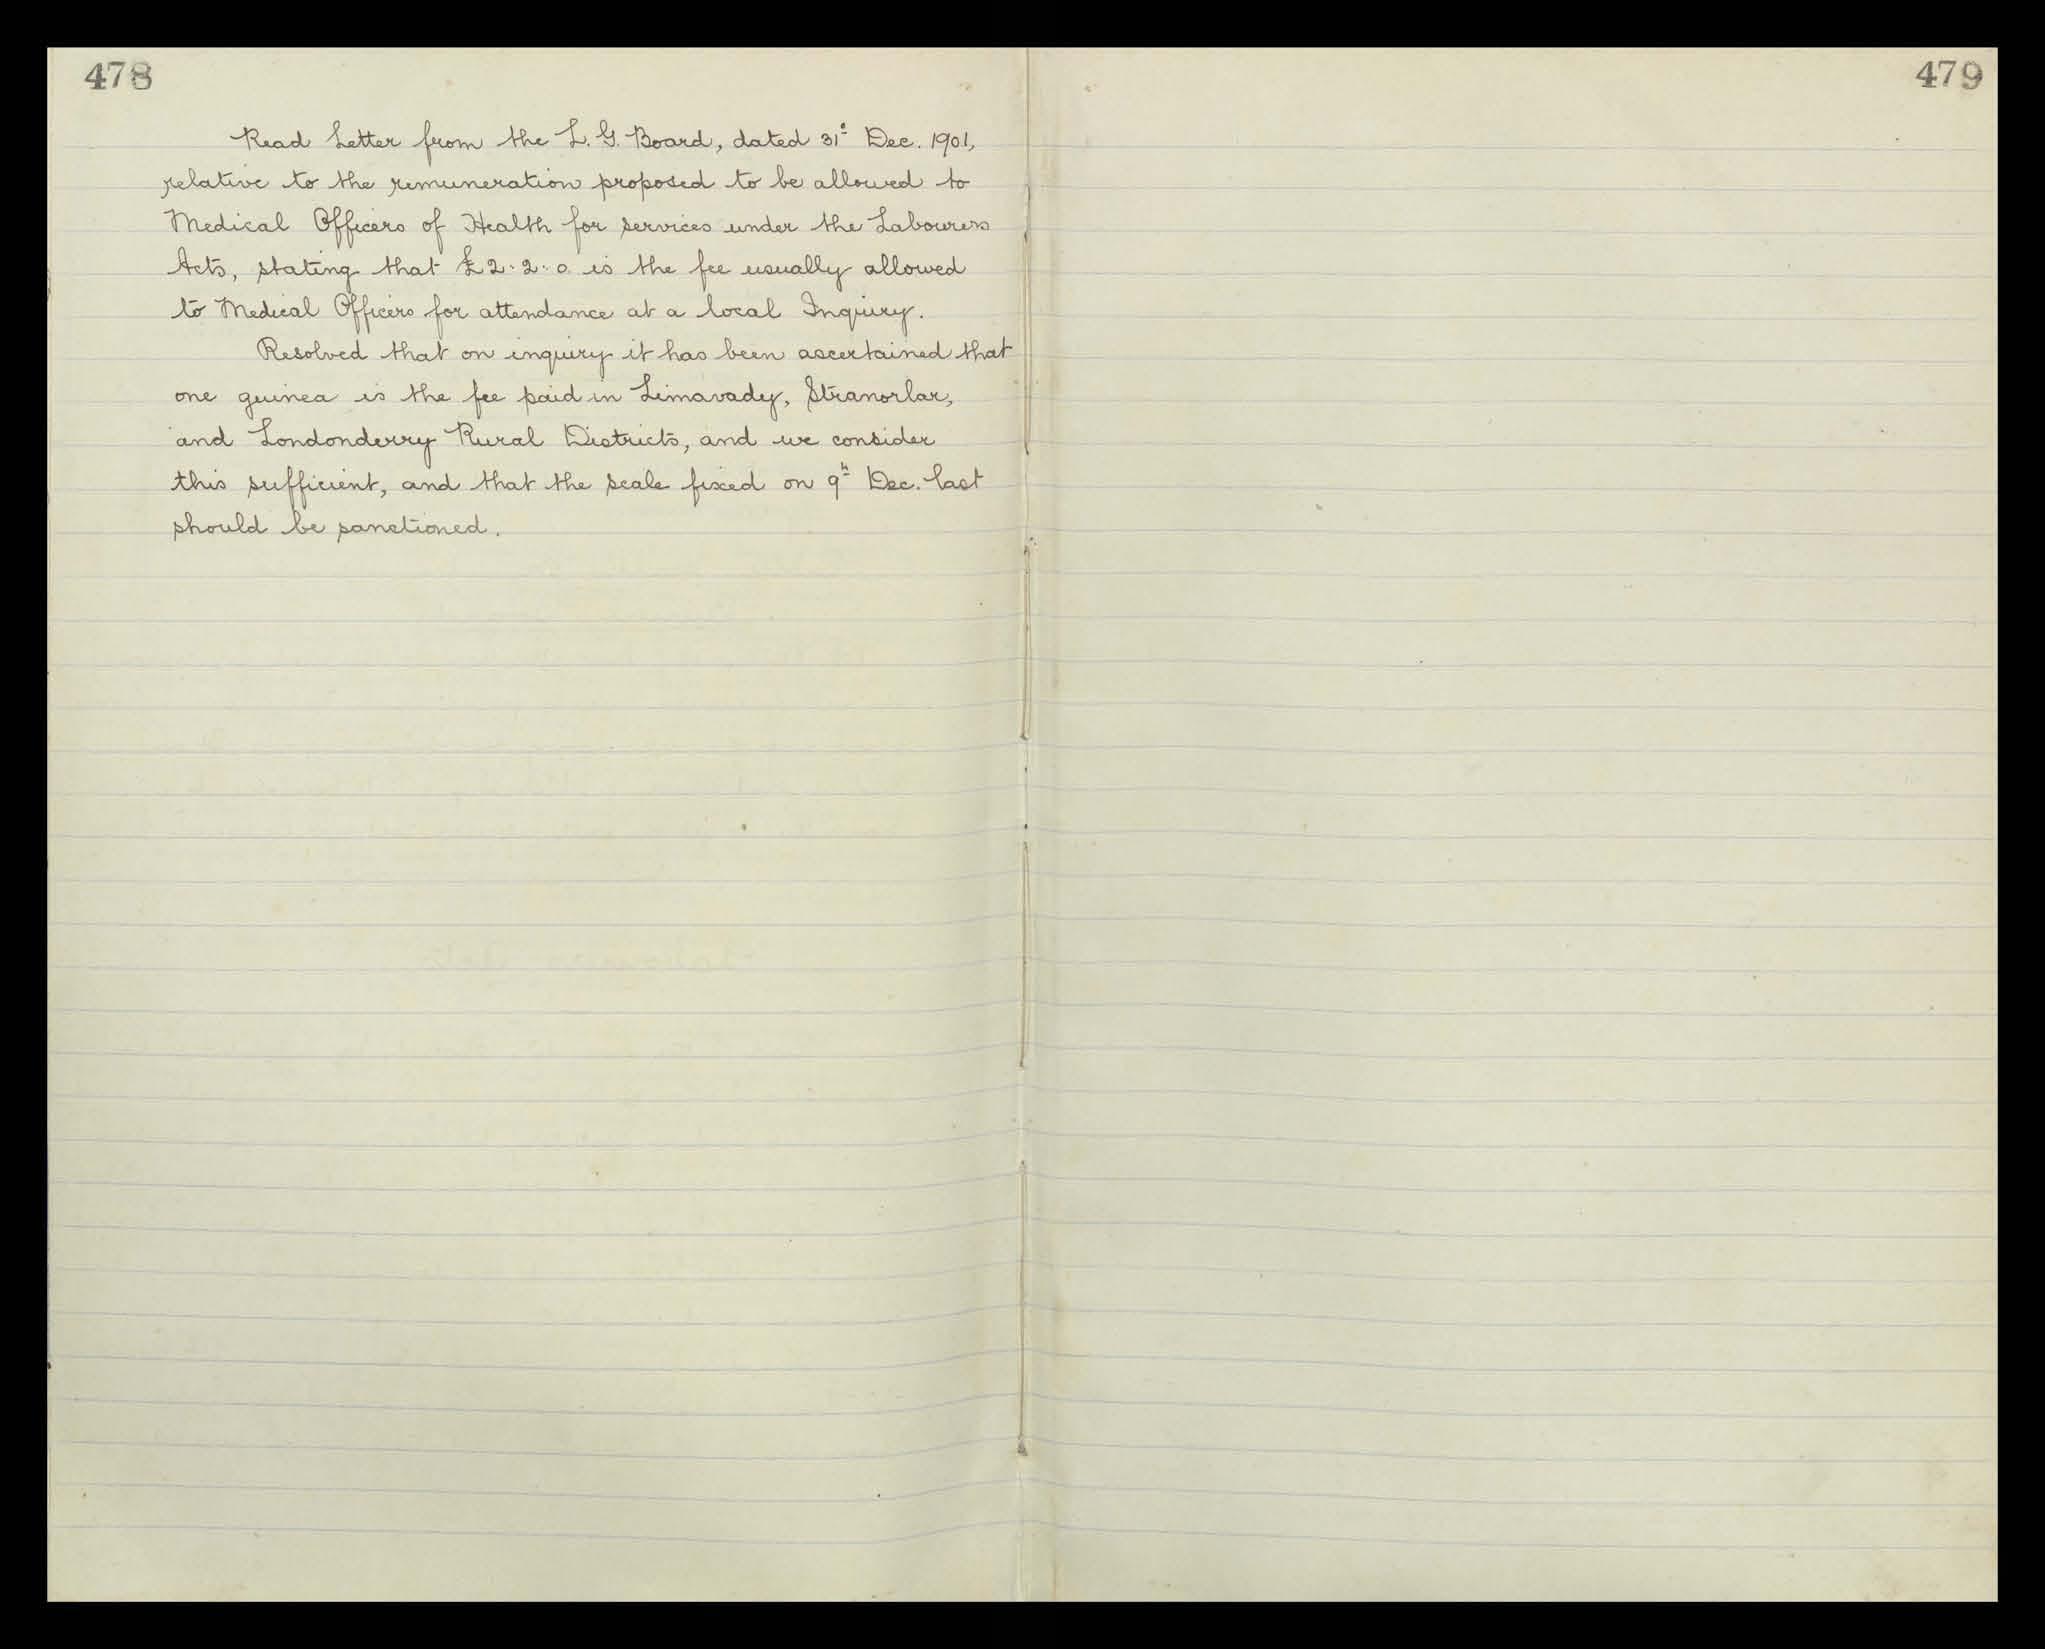 478
479
Read Letter from the L. G. Board, dated 31s Dec. 1901,
relative to the remuneration proposed to be allowed to
Medical Officers of Health for services under the Labourers
Acts, stating that £2:2:0 is the fee usually allowed
to Medical Officers for attendance at a local Inquiry.
Resolved that on inquiry it has been ascertained that
one guinea is the fee paid in Limavady, Stranorlar,
and Londonderry Rural Districts, and we consider
this sufficient, and that the scale fixed on 9h Dec. last
should be sanctioned.